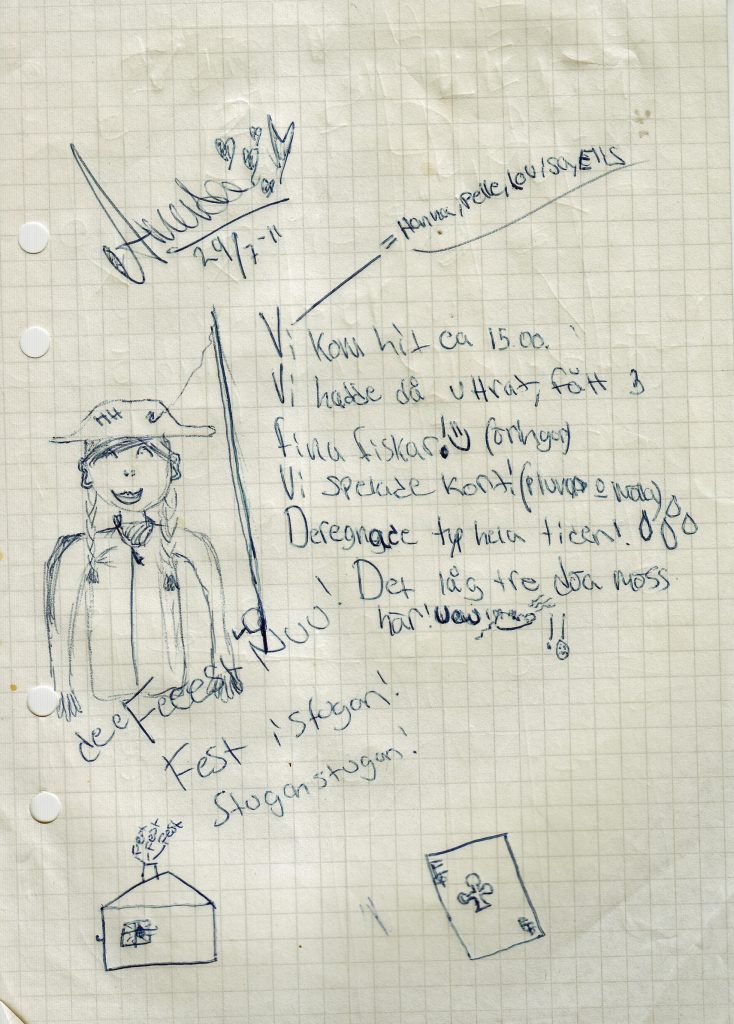 29/7-11
= Hanna, Pelle, Lovisa, Ellis
Vi kom hit ca 15.00.
Vi hadde då uttrat, fått 3
fina fiskar! (öringar)
Vi spelade kort! (plump o
Deregnade typ hela tiden!
Det låg tre döa möss
här!
HH
dee Feeest nuu!
Fest i stugan!
Stugan stugan!
Fest
Fest
Fest